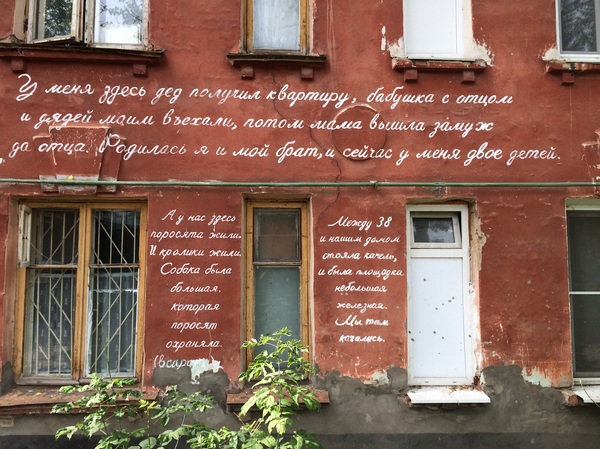 У меня здесь дед получил квартиру, бабушка с отцом
и дядей маим въехали, потом мама вышла замуж
да отца. Родилась я и мой брат, и сейчас у меня двое детей.
А у нас здесь
поросята жили.
И кролики жили.
Собака была
большая,
которая
поросят
охраняла.
Между 38
и нашим домом
стояла качель,
и была площадка
небольшая
железная.
Мы там
качались.